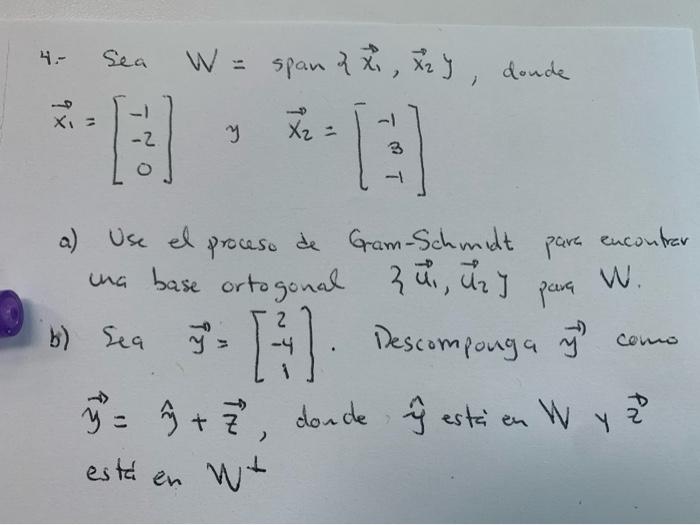 4.- Sea W = span { x⃗₁, x⃗₂ }, donde
x⃗₁ = [-1 -2 0] y x⃗₂ = [-1 3 -1]
a) Use el proceso de Gram-Schmidt para encontrar
una base ortogonal { u⃗₁, u⃗₂ } para W.
b) Sea y⃗ = [2 -4 1]. Descomponga y⃗ como
y⃗ = ŷ + z⃗, donde ŷ está en W y z⃗
está en W⊥